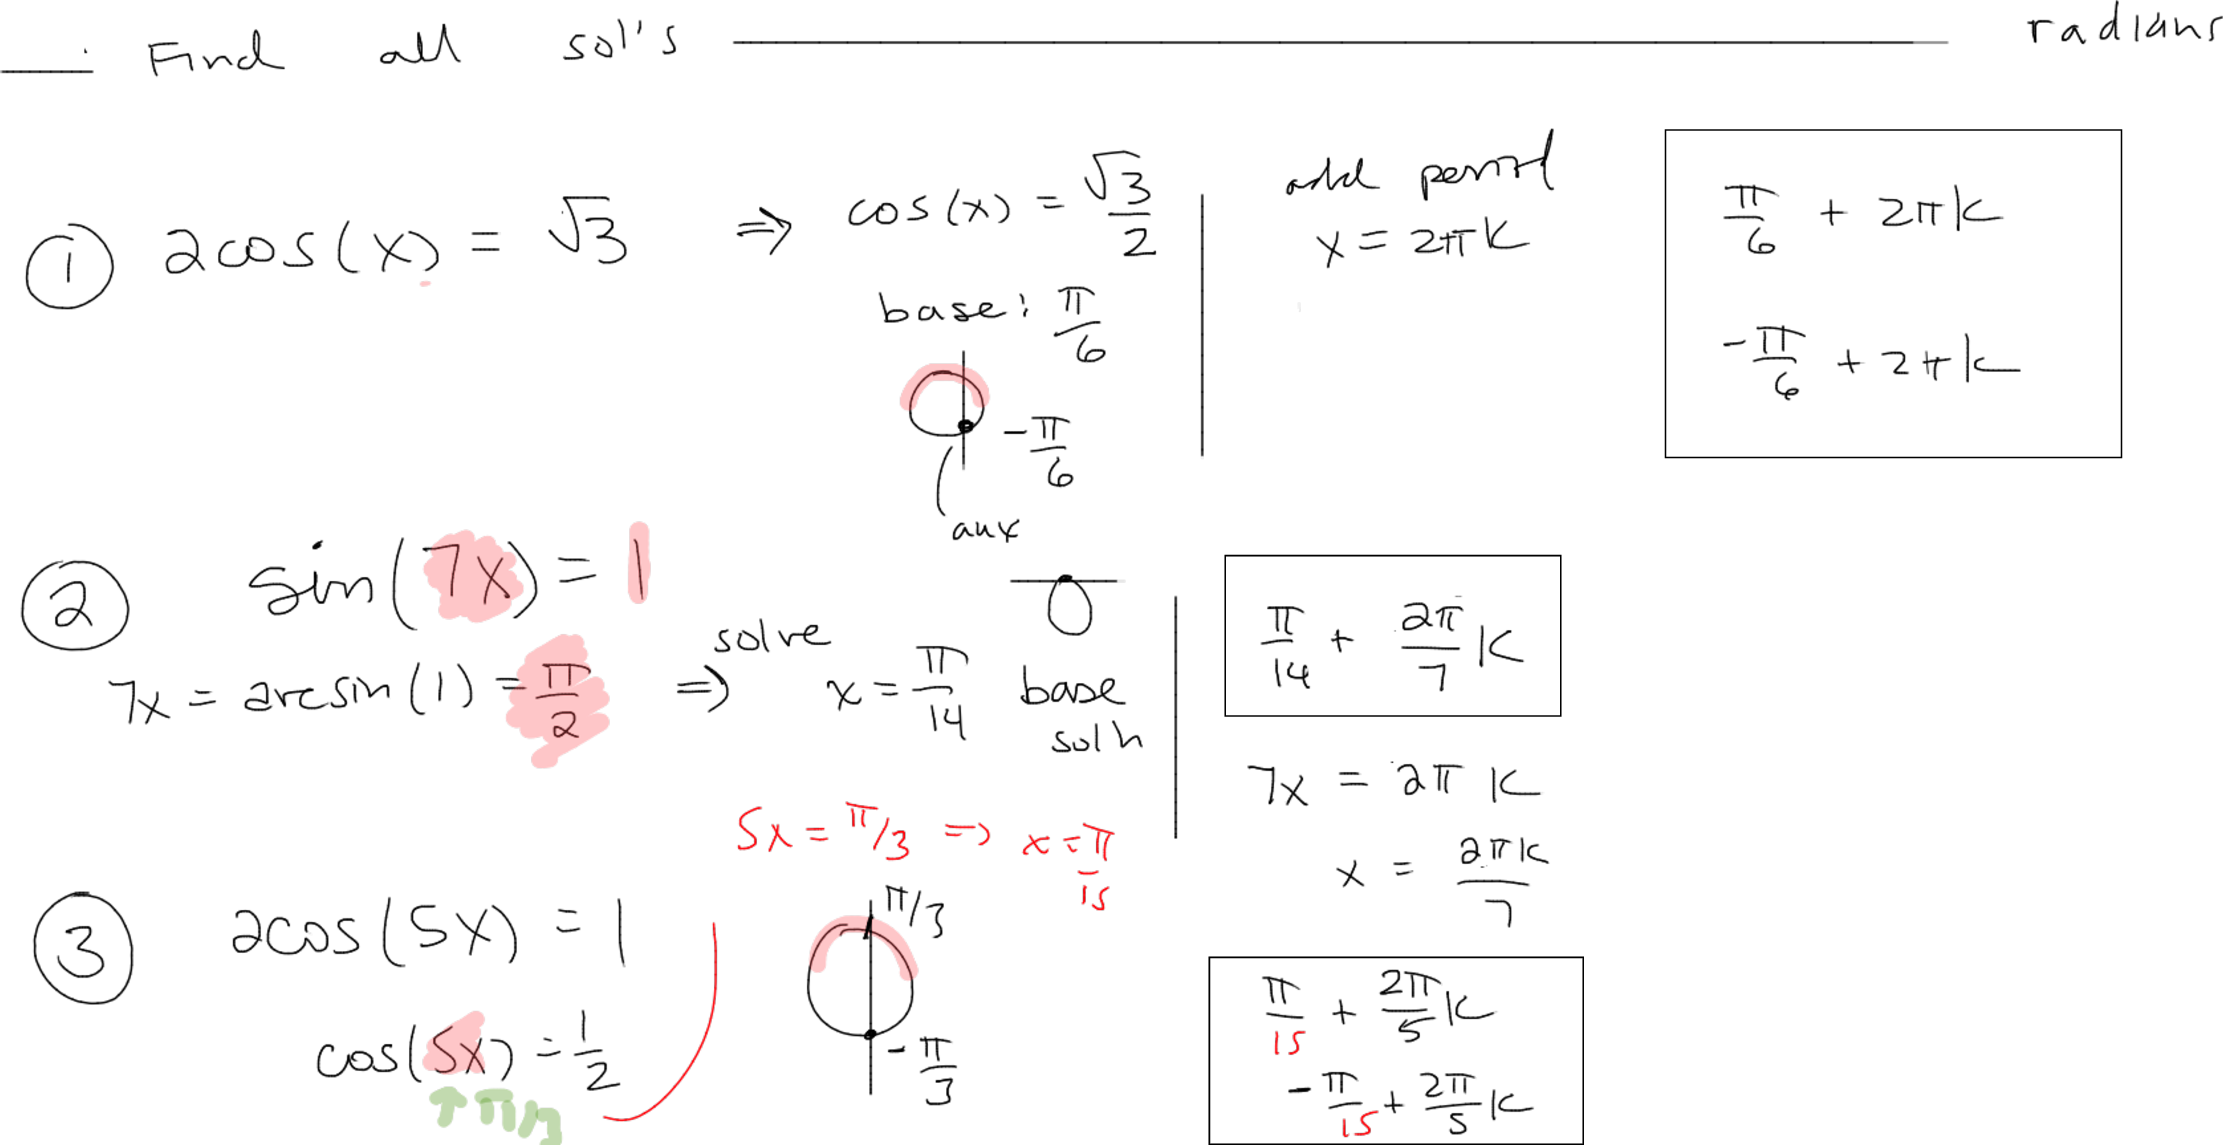 Find all sol's radians
① 2cos(x) = √3 ⇒ cos(x) = √3/2
base: π/6
-π/6
aux
add period
x = 2πk
π/6 + 2πk
-π/6 + 2πk
② sin(7x) = 1
7x = arcsin(1) = π/2 ⇒ solve x = π/14
base
soln
π/14 + 2π/7 k
7x = 2πk
x = 2πk/7
③ 2cos(5x) = 1
cos(5x) = 1/2
↑ π/3
5x = π/3 => x = π/15
π/3
-π/3
π/15 + 2π/5 k
-π/15 + 2π/5 k